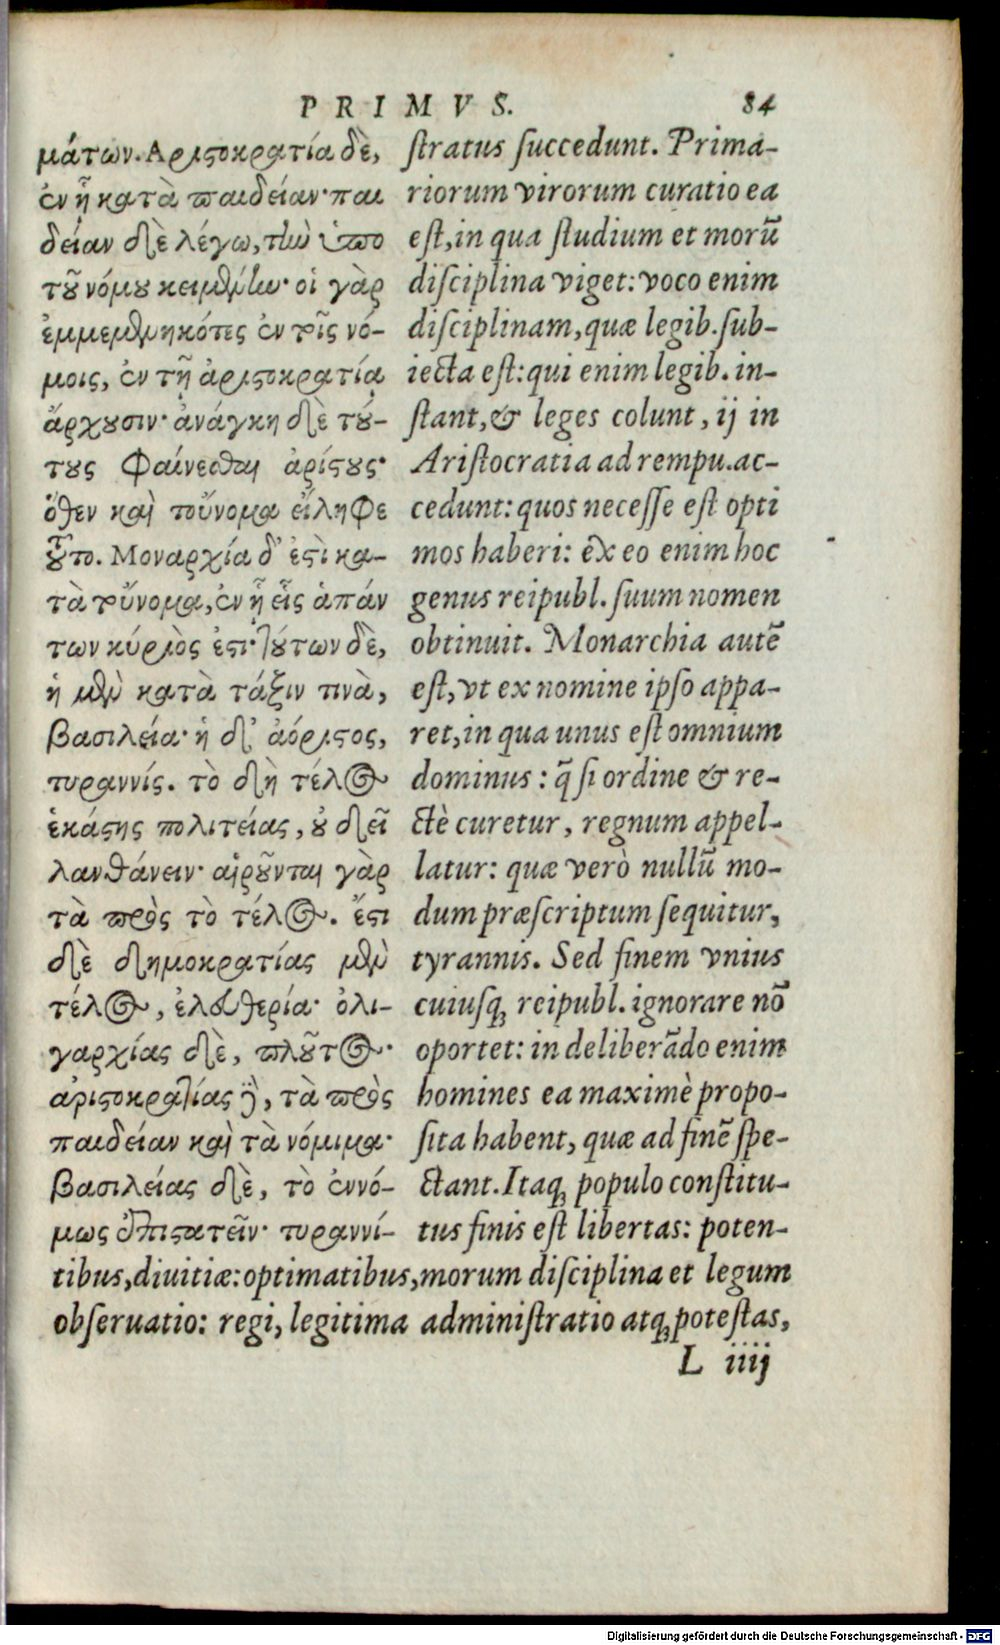 PRIMVS. 84
μάτων. Αριστοκρατία δὲ,
ἐν ᾗ κατὰ παιδείαν· παι
δείαν δὲ λέγω, τὴν ὑπὸ
τοῦ νόμου κειμένην· οἱ γὰρ
ἐμμεμενηκότες ἐν τοῖς νό-
μοις, ἐν τῇ ἀριστοκρατίᾳ
ἄρχουσιν· ἀνάγκη δὲ τού-
τους φαίνεσθαι ἀρίστους·
ὅθεν καὶ τοὔνομα εἴληφε
τοῦτο. Μοναρχία δ' ἐστὶ κα-
τὰ τοὔνομα, ἐν ᾗ εἷς ἁπάν
των κύριός ἐστι· τούτων δὲ,
ἡ μὲν κατὰ τάξιν τινὰ,
βασιλεία· ἡ δ' ἀόριστος,
τυραννίς. τὸ δὴ τέλος
ἑκάστης πολιτείας, οὐ δεῖ
λανθάνειν· αἱροῦνται γὰρ
τὰ πρὸς τὸ τέλος. ἔστι
δὲ δημοκρατίας μὲν
τέλος, ἐλευθερία· ὀλι-
γαρχίας δὲ, πλοῦτος·
ἀριστοκρατίας δὲ, τὰ πρὸς
παιδείαν καὶ τὰ νόμιμα·
βασιλείας δὲ, τὸ ἐννό-
μως ἐπιστατεῖν· τυραννί-
ſtratus ſuccedunt. Prima-
riorum virorum curatio ea
eſt, in qua ſtudium et morũ
diſciplina viget: voco enim
diſciplinam, quæ legib. ſub-
iecta eſt: qui enim legib. in-
ſtant, & leges colunt, ij in
Ariſtocratia ad rempu. ac-
cedunt: quos neceſſe eſt opti
mos haberi: ex eo enim hoc
genus reipubl. ſuum nomen
obtinuit. Monarchia autẽ
eſt, vt ex nomine ipſo appa-
ret, in qua unus eſt omnium
dominus: q̃ ſi ordine & re-
ctè curetur, regnum appel-
latur: quæ verò nullũ mo-
dum præſcriptum ſequitur,
tyrannis. Sed finem vnius
cuiuſq; reipubl. ignorare nõ
oportet: in deliberãdo enim
homines ea maximè propo-
ſita habent, quæ ad finẽ ſpe-
ctant. Itaq; populo conſtitu-
tus finis eſt libertas: poten-
tibus, diuitiæ: optimatibus, morum diſciplina et legum
obſeruatio: regi, legitima adminiſtratio atq; poteſtas,
L iiij
Digitalisierung gefördert durch die Deutsche Forschungsgemeinschaft - DFG